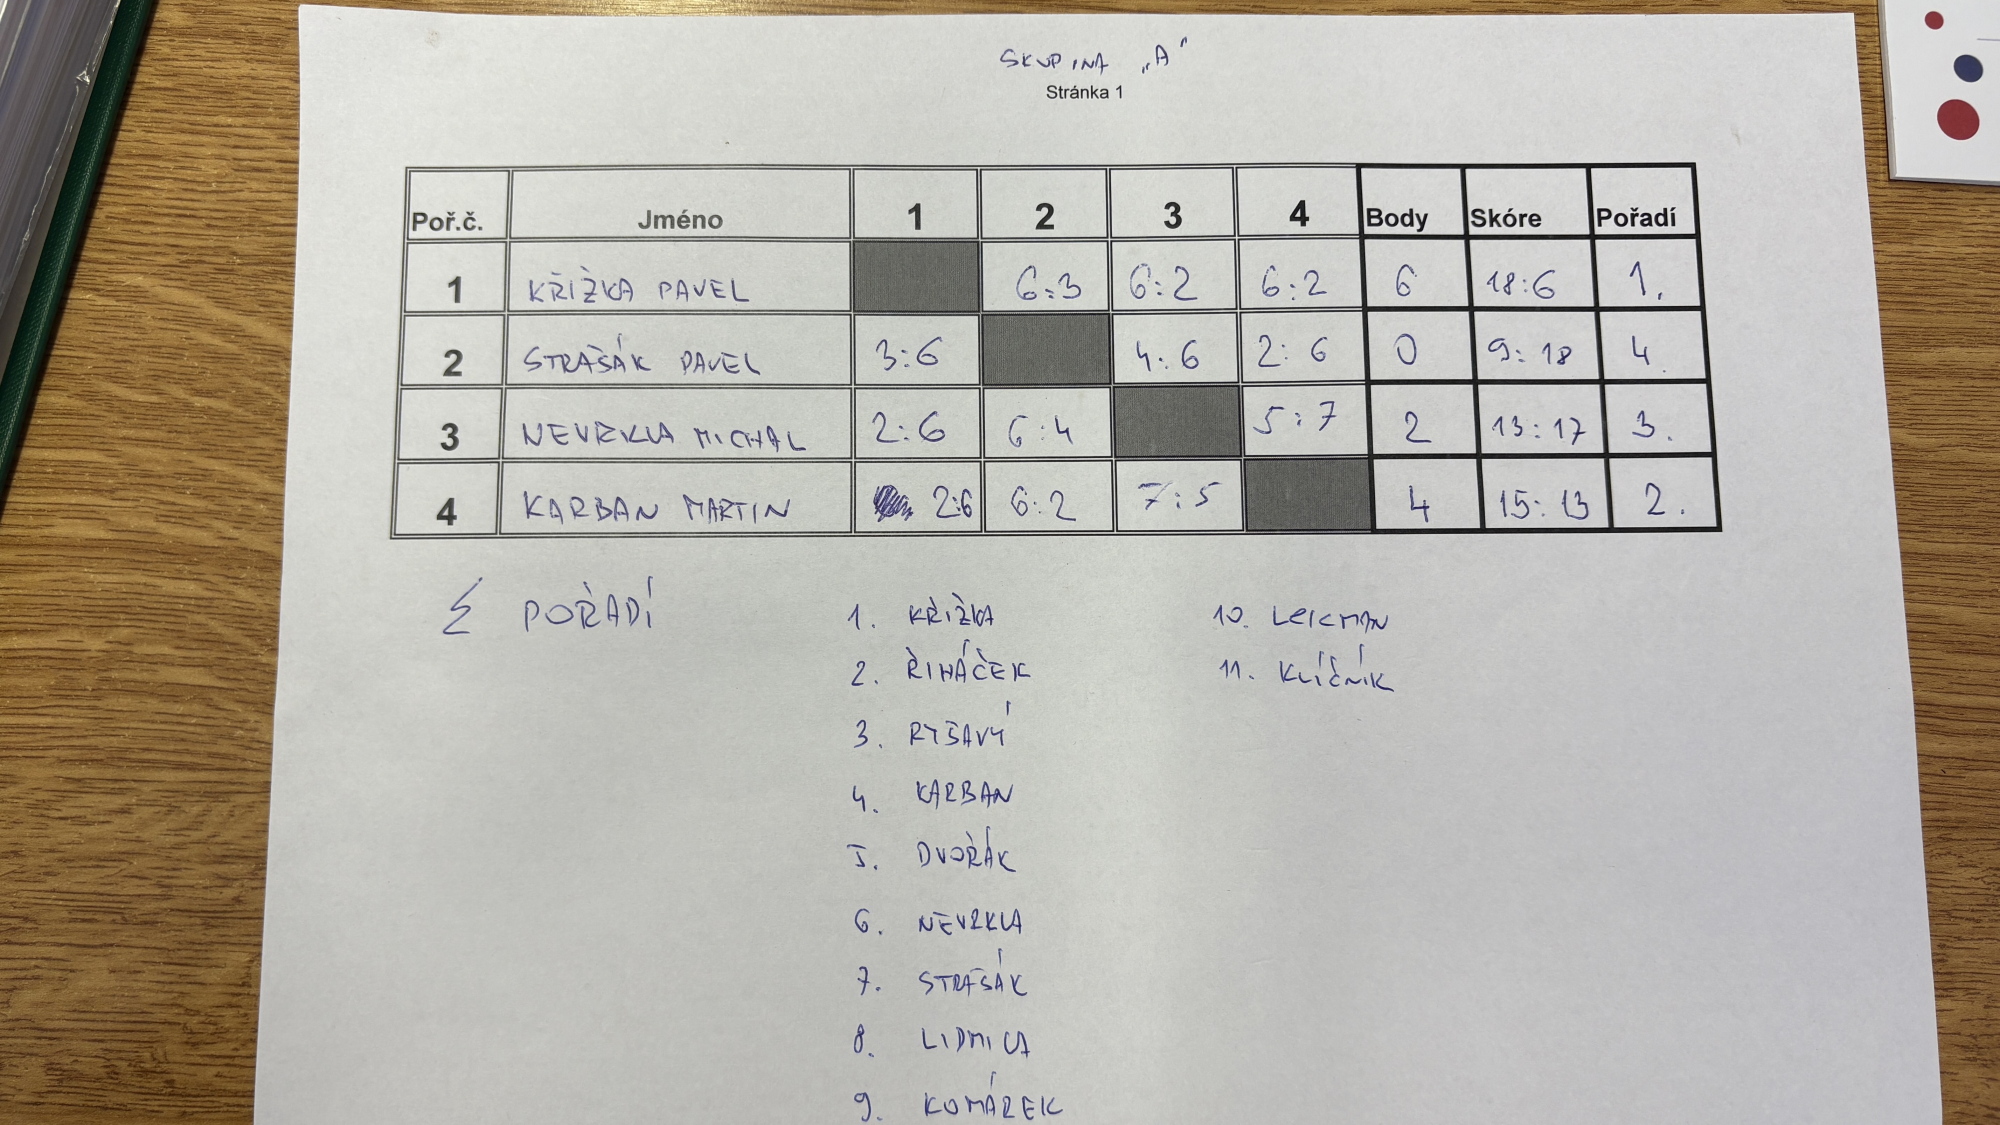 SKUPINA „A"
Stránka 1
Poř.č. Jméno 1 2 3 4 Body Skóre Pořadí
1 KŘÍŽKA PAVEL 6:3 6:2 6:2 6 18:6 1.
2 STRAŠÁK PAVEL 3:6 4:6 2:6 0 9:18 4.
3 NEVRKLA MICHAL 2:6 6:4 5:7 2 13:17 3.
4 KARBAN MARTIN 2:6 6:2 7:5 4 15:13 2.
Σ POŘADÍ
1. KŘÍŽKA
2. ŘIHÁČEK
3. RYŠAVÝ
4. KARBAN
5. DVOŘÁK
6. NEVRKLA
7. STRAŠÁK
8. LIDMILA
9. KOMÁREK
10. LEICMAN
11. KLÍČNÍK